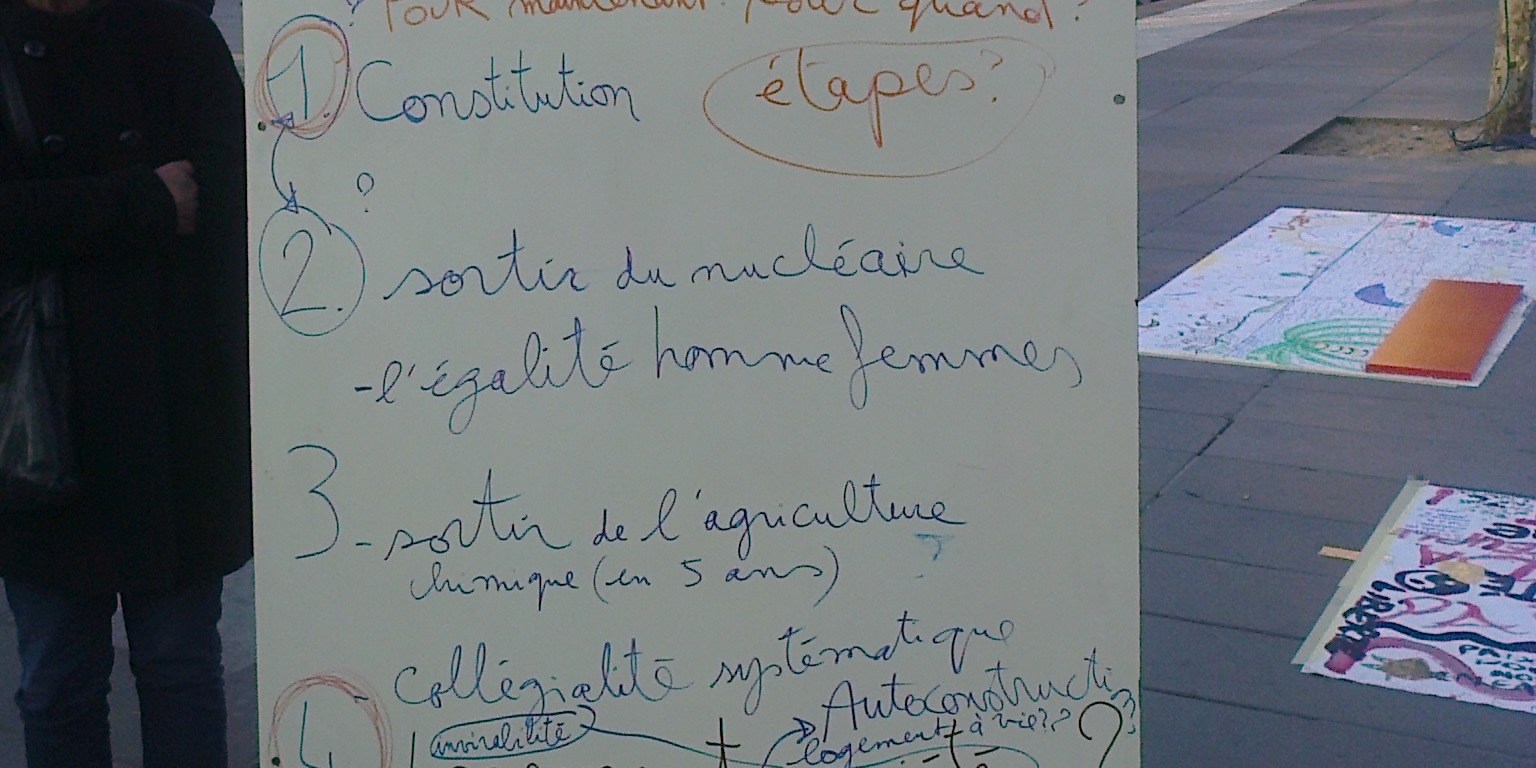 ? Pour maintenant? pour quand?
1. Constitution étapes?
?
2. sortir du nucléaire
-l'égalité homme femmes
3-sortir de l'agriculture
chimique (en 5 ans) ?
4 - Collégialité systématique
Autoconstructi
logement à vie??
+
?